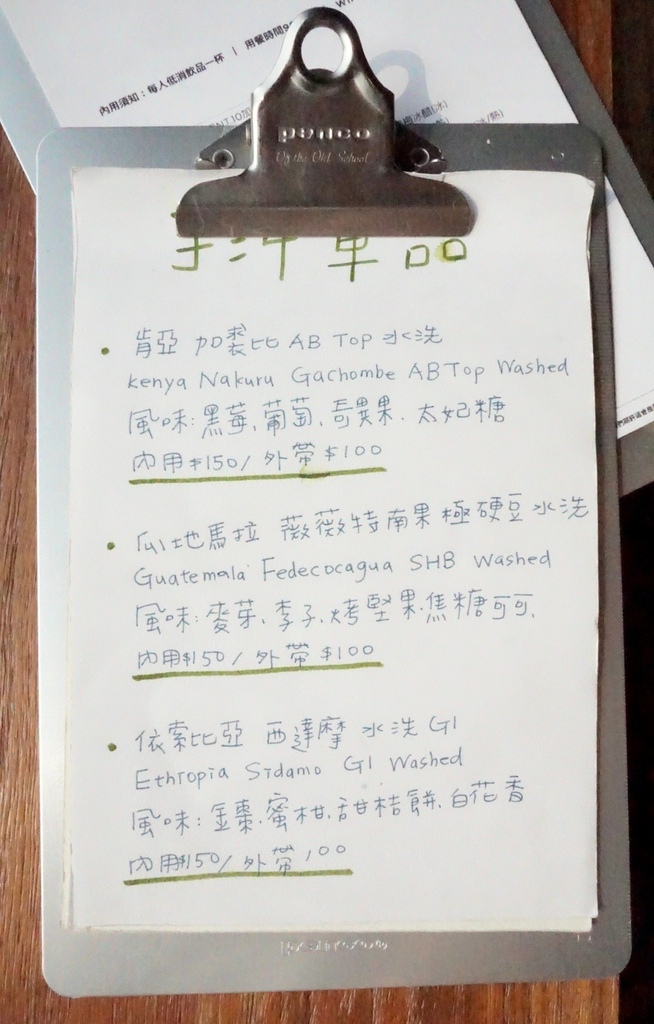 內用須知：每人低消飲品一杯 ｜ 用餐時間
penco
Of the Old School
手沖單品
• 肯亞 加裘比 AB Top 水洗
Kenya Nakuru Gachombe AB Top Washed
風味：黑莓、葡萄、奇異果、太妃糖
內用$150/外帶$100
• 瓜地馬拉 薇薇特南果 極硬豆 水洗
Guatemala Fedecocagua SHB Washed
風味：麥芽、李子、烤堅果、焦糖可可、
內用$150/外帶$100
• 依索比亞 西達摩 水洗 G1
Ethiopia Sidamo G1 Washed
風味：金棗、蜜柑、甜桔餅、白花香
內用$150/外帶100